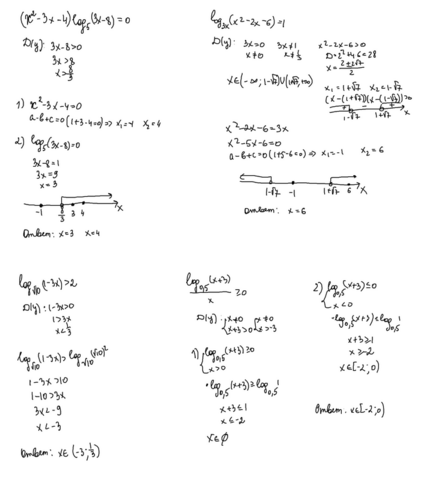 (x²-3x-4)log₅(3x-8)=0
D(y): 3x-8>0
3x>8
x>8/3
1) x²-3x-4=0
a-b+c=0 (1+3-4=0) ⇒ x₁=-1 x₂=4
2) log₅(3x-8)=0
3x-8=1
3x=9
x=3
-1 8/3 3 4 x
Ответ: x=3 x=4
log₃ₓ(x²-2x-6)=1
D(y): 3x>0 3x≠1 x²-2x-6>0
x≠0 x≠1/3 D=2²+4·6=28
x=(2±2√7)/2
x∈(-∞;1-√7)∪(1+√7;+∞) x₁=1+√7 x₂=1-√7
(x-(1+√7))(x-(1-√7))>0
1-√7 1+√7 x
x²-2x-6=3x
x²-5x-6=0
a-b+c=0 (1+5-6=0) ⇒ x₁=-1 x₂=6
1-√7 -1 1+√7 6 x
Ответ: x=6
log√10(1-3x)>2
D(y): 1-3x>0
1>3x
x<1/3
log√10(1-3x)>log√10(√10)²
1-3x>10
1-10>3x
3x<-9
x<-3
Ответ: x∈(-3;1/3)
log₀,₅(x+3)/x ≥0
D(y): x≠0 x≠0
x+3>0 x>-3
1) log₀,₅(x+3)≥0
x>0
•log₀,₅(x+3)≥log₀,₅1
x+3≤1
x≤-2
x∈∅
2) log₀,₅(x+3)≤0
x<0
•log₀,₅(x+3)≤log₀,₅1
x+3≥1
x≥-2
x∈[-2;0)
Ответ: x∈[-2;0)